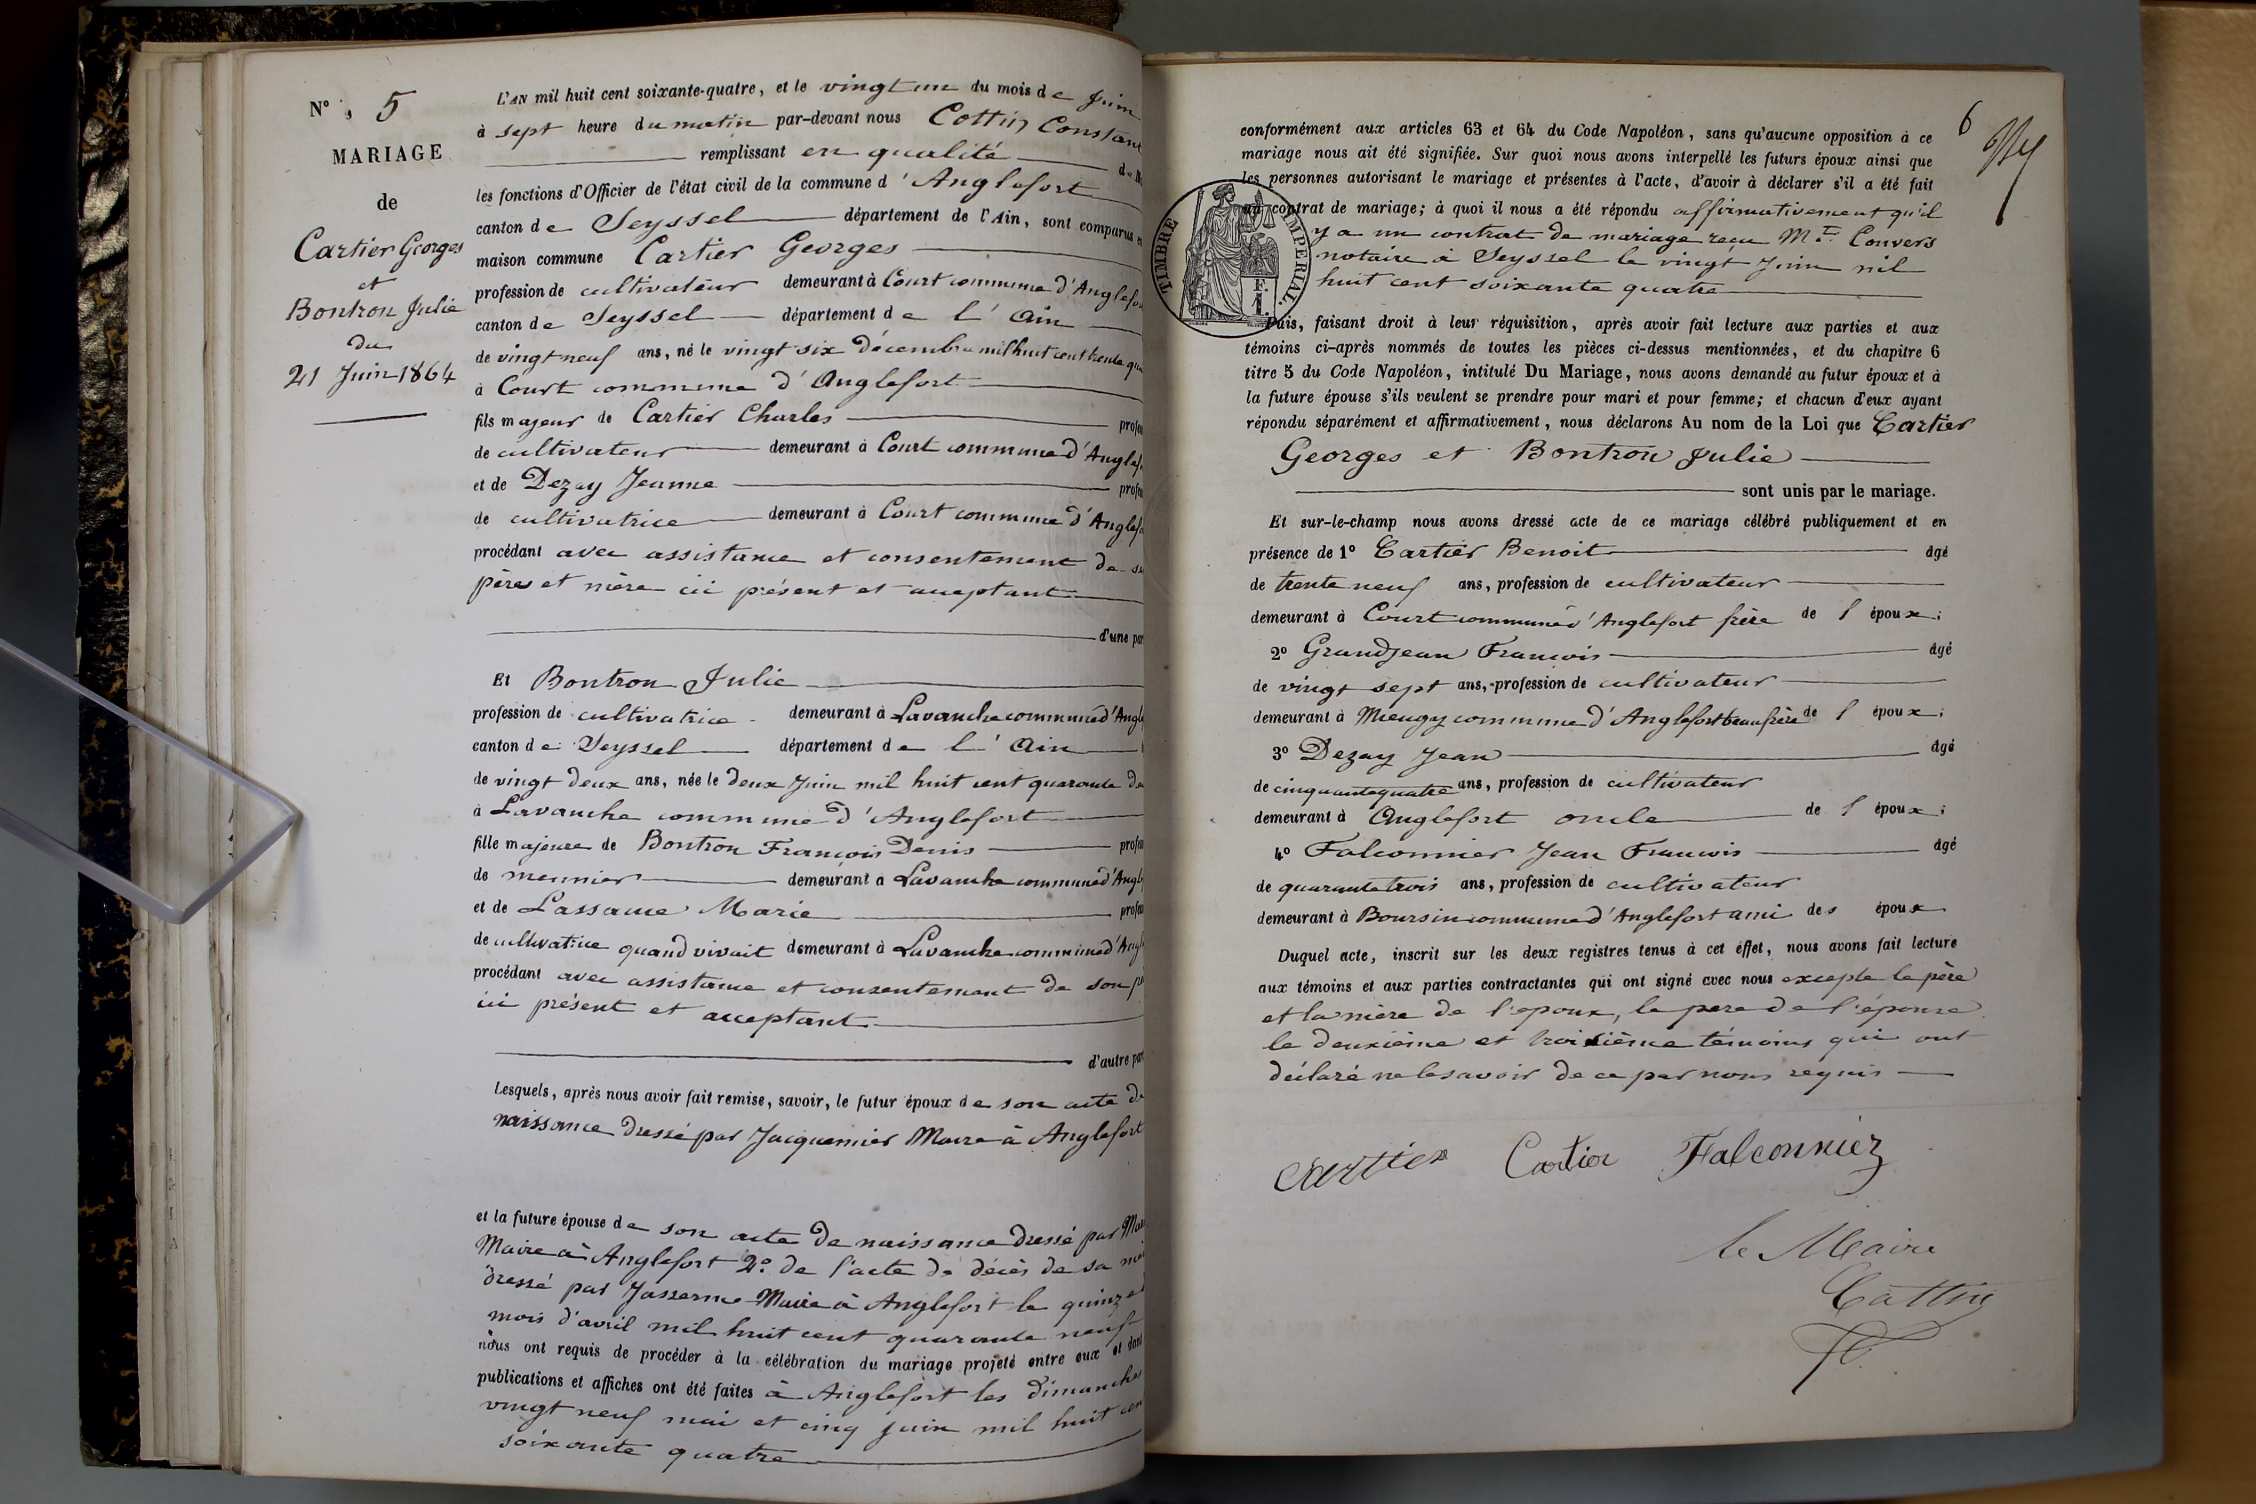 N° 5
MARIAGE
de
Cartier Georges
et
Bontron Julie
du
21 Juin 1864
L'AN mil huit cent soixante-quatre, et le vingt un du mois de Juin
à sept heure du matin par-devant nous Cottin Constant
remplissant en qualité de
les fonctions d'Officier de l'état civil de la commune d'Anglefort
canton de Seyssel département de l'Ain, sont comparus en
maison commune Cartier Georges
profession de cultivateur demeurant à Court commune d'Anglefort
canton de Seyssel département de l'Ain
de vingt neuf ans, né le vingt six décembre mil huit cent trente
à Court commune d'Anglefort
fils majeur de Cartier Charles
de cultivateur demeurant à Court commune d'Anglef
et de Dezay Jeanne
de cultivatrice demeurant à Court commune d'Anglef
procédant avec assistance et consentement de
père et mère ici présent et acceptant
d'une par
Et Bontron Julie
profession de cultivatrice demeurant à Lavanche commune d'Angl
canton de Seyssel département de l'Ain
de vingt deux ans, née le deux Juin mil huit cent quarante de
à Lavanche commune d'Anglefort
fille majeure de Bontron François Denis
de meunier demeurant à Lavanche commune d'Angl
et de Lassame Marie
de cultivatrice quand vivait demeurant à Lavanche commune d'Angl
procédant avec assistance et consentement de son
ici présent et acceptant
d'autre par
Lesquels, après nous avoir fait remise, savoir, le futur époux de son acte de
naissance dressé par Jacquemier Maire à Anglefort
et la future épouse de son acte de naissance dressé par
Maire à Anglefort 2° de l'acte de décès de sa
dressé par Maire à Anglefort le quinze
mois d'avril mil huit cent quarante neuf
nous ont requis de procéder à la célébration du mariage projeté entre eux et dont
publications et affiches ont été faites à Anglefort les dimanches
vingt neuf mai et cinq juin mil huit cen
soixante quatre
6
conformément aux articles 63 et 64 du Code Napoléon, sans qu'aucune opposition à ce
mariage nous ait été signifiée. Sur quoi nous avons interpellé les futurs époux ainsi que
les personnes autorisant le mariage et présentes à l'acte, d'avoir à déclarer s'il a été fait
un contrat de mariage; à quoi il nous a été répondu affirmativement qu'il
y a un contrat de mariage reçu Me Convers
notaire à Seyssel le vingt Juin mil
huit cent soixante quatre
TIMBRE IMPERIAL.
F.
1.
Puis, faisant droit à leur réquisition, après avoir fait lecture aux parties et aux
témoins ci-après nommés de toutes les pièces ci-dessus mentionnées, et du chapitre 6
titre 5 du Code Napoléon, intitulé Du Mariage, nous avons demandé au futur époux et à
la future épouse s'ils veulent se prendre pour mari et pour femme; et chacun d'eux ayant
répondu séparément et affirmativement, nous déclarons Au nom de la Loi que Cartier
Georges et Bontron Julie
sont unis par le mariage.
Et sur-le-champ nous avons dressé acte de ce mariage célébré publiquement et en
présence de 1° Cartier Benoit âgé
de trente neuf ans, profession de cultivateur
demeurant à Court commune d'Anglefort frère de l époux;
2° Grandjean François âgé
de vingt sept ans, profession de cultivateur
demeurant à Mieugy commune d'Anglefort beau frère de l époux;
3° Dezay Jean âgé
de cinquante quatre ans, profession de cultivateur
demeurant à Anglefort oncle de l époux;
4° Falconnier Jean François âgé
de quarante trois ans, profession de cultivateur
demeurant à Boursin commune d'Anglefort ami des époux
Duquel acte, inscrit sur les deux registres tenus à cet éffet, nous avons fait lecture
aux témoins et aux parties contractantes qui ont signé avec nous excepte le père
et la mère de l'epoux, le pere de l'épouse
le deuxième et troisième témoins qui ont
déclaré ne le savoir de ce par nous requis
Cartier Cartier Falconnier
le Maire
Cottin